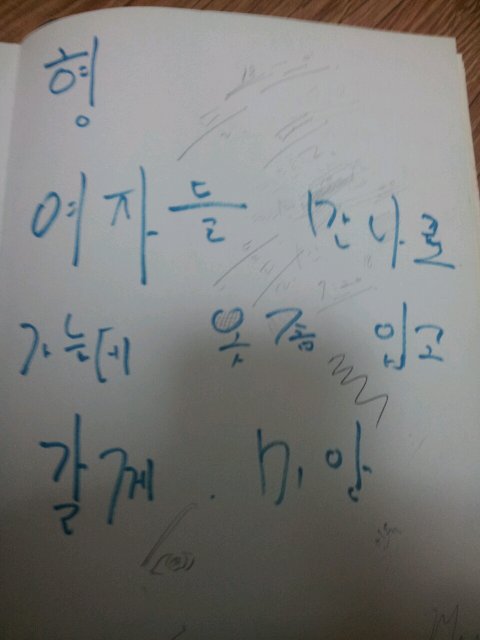 형
여자들 만나로
가는데 옷 좀 입고
갈께. 미안